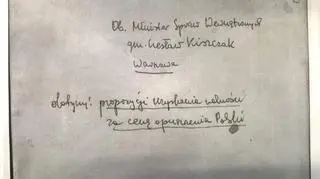 Ob. Minister Spraw Wewnętrznych
gen. Czesław Kiszczak
Warszawa
dotyczy: propozycji uzyskania wolności
za cenę opuszczenia Polski